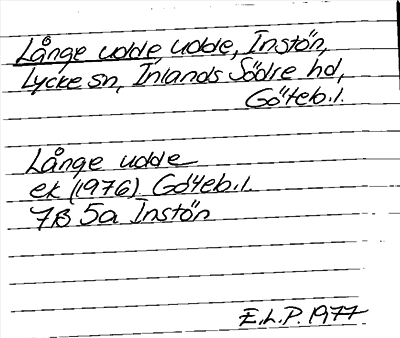 Långe udde udde, Instön,
Lycke sn, Inlands Södre hd,
Göteb.l.
Långe udde
ek (1976) Göteb.l.
7B 5a Instön
E.L.P. 1977